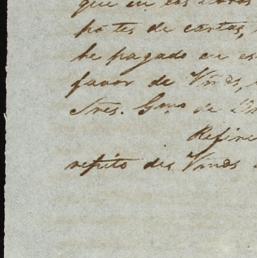 que en las
portes de cartas,
he pagado en es
favor de Vmds,
Sres. Gmo de
Refirie
repito des Vmds